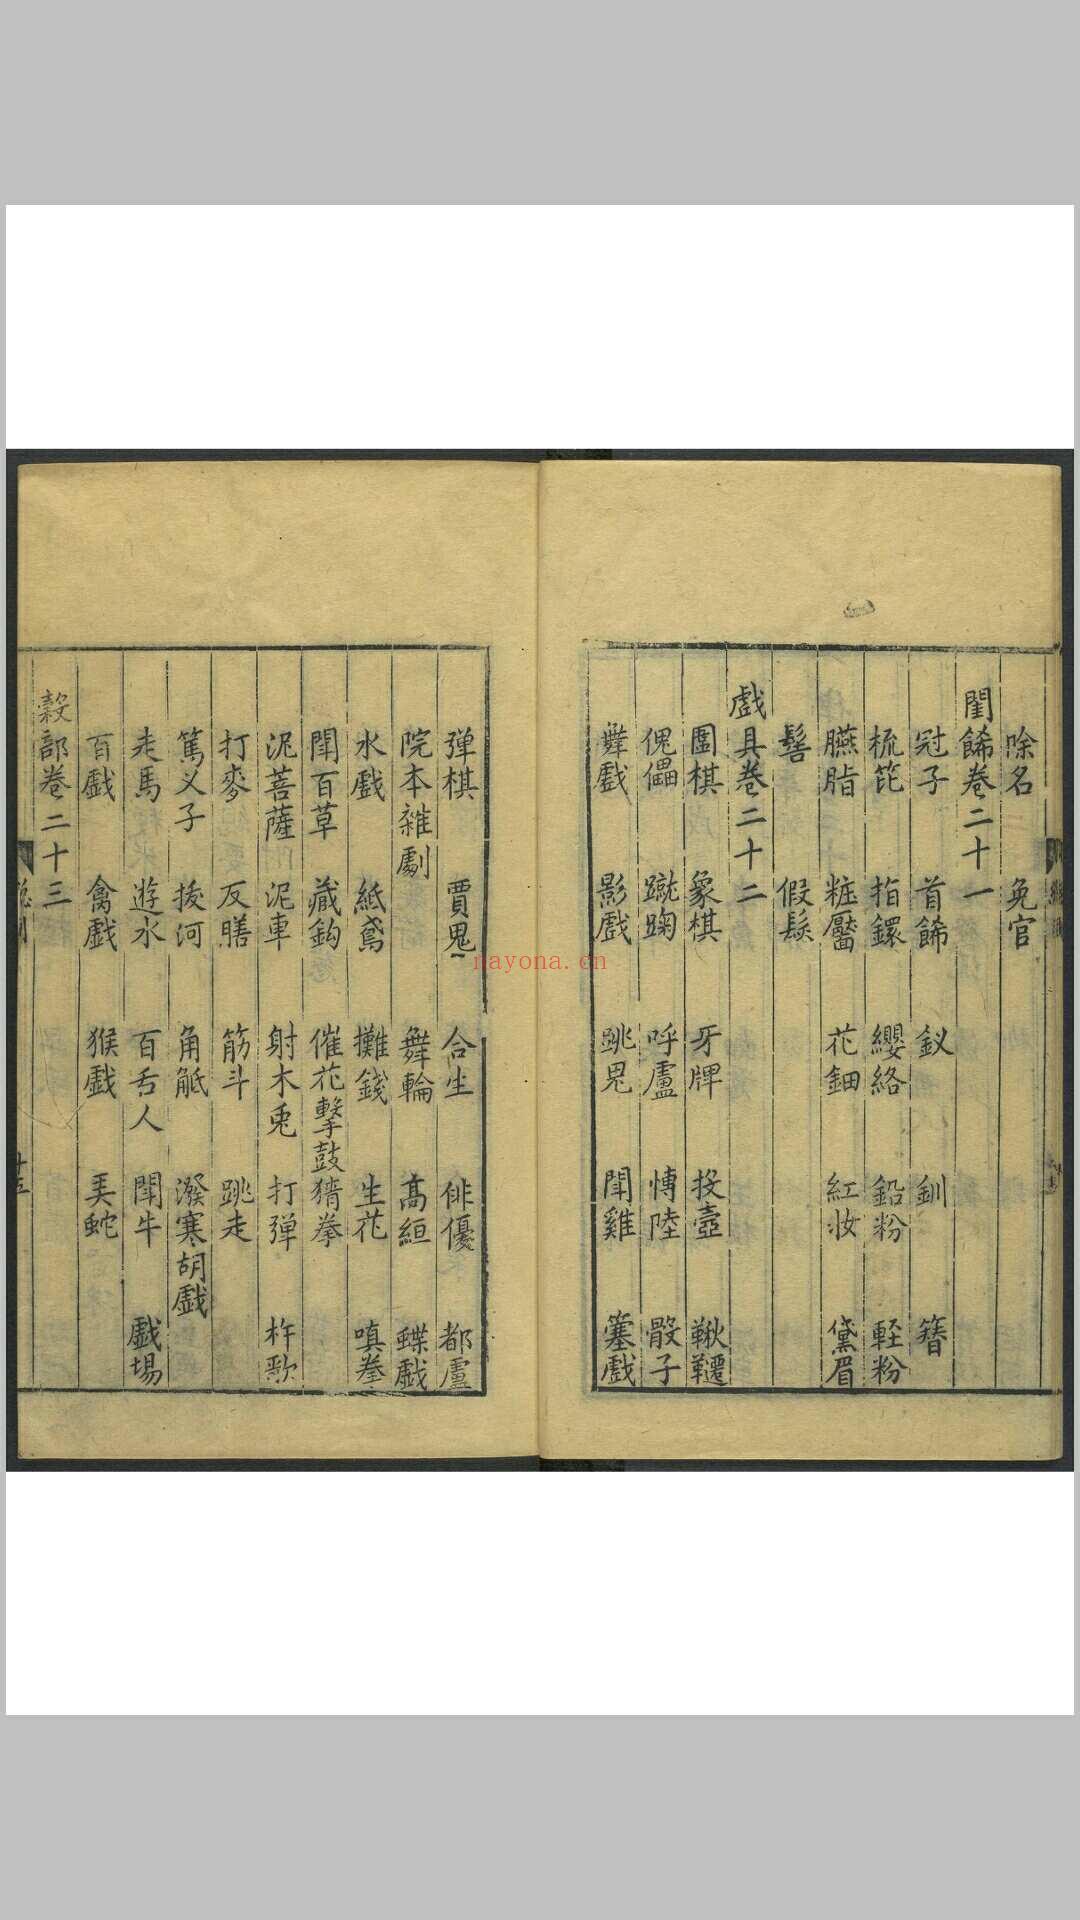 除名 免官
閨餙卷二十一
冠子 首餙 釵 釧 簪
梳箆 指鐶 纓絡 鉛粉 輕粉
臙脂 粧靨 花鈿 紅妝 黛眉
髻 假髮
戲具卷二十二
圍棋 象棋 牙牌 投壺 鞦韆
傀儡 蹴踘 呼盧 慱陸 骰子
舞戲 影戲 跳鬼 鬪雞 簺戲
弹棋 賈鬼 合生 俳優 都盧
院本雜劇 舞輪 高絙 蹀戲
水戲 紙鳶 攤錢 生花 嗔拳
鬪百草 藏鈎 催花擊鼓 猜拳
泥菩薩 泥車 射木兎 打弹 杵歌
打麥 反膳 筋斗 跳走
篤义子 拔河 角觝 潑寒胡戲
走馬 遊水 百舌人 鬪牛 戲場
百戲 禽戲 猴戲 弄蛇
穀部卷二十三
十五
nayona.cn